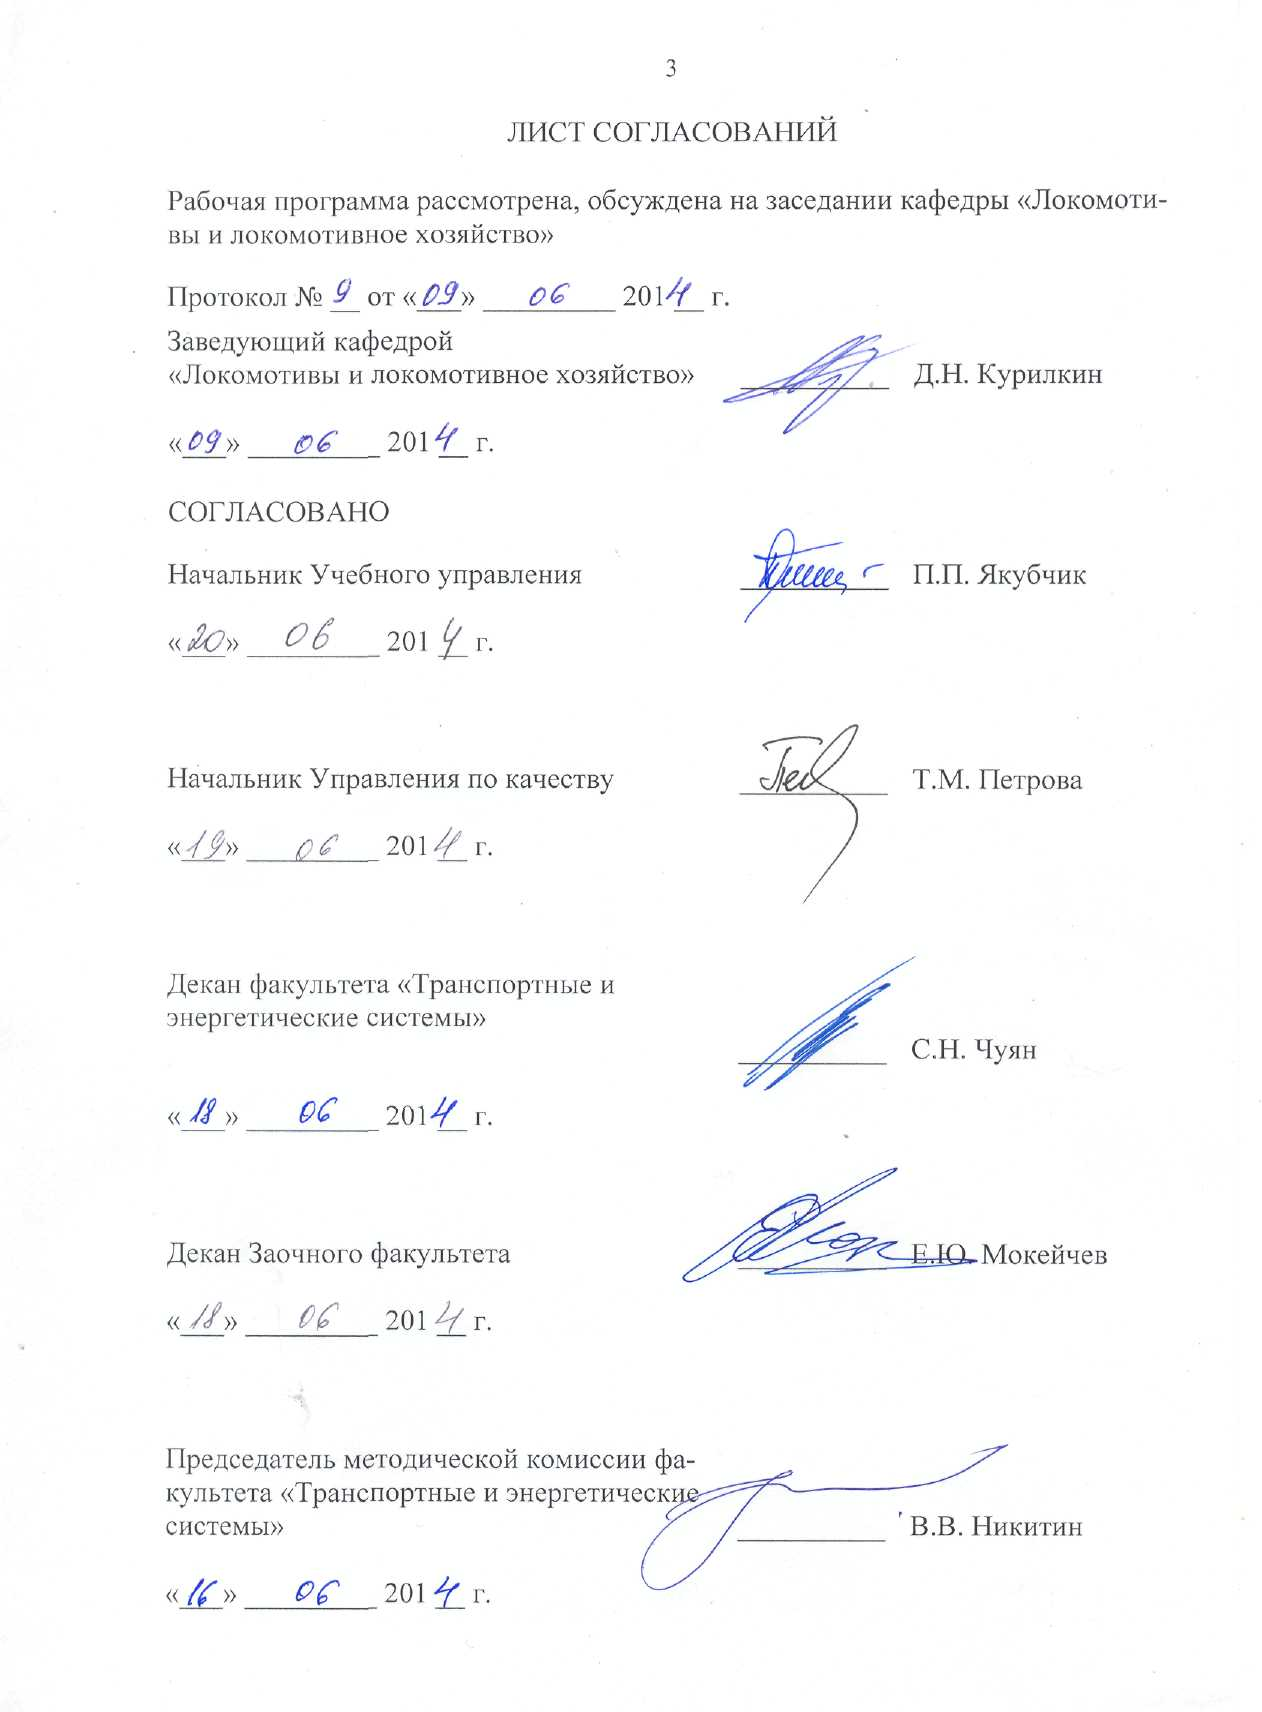 3
ЛИСТ СОГЛАСОВАНИЙ
Рабочая программа рассмотрена, обсуждена на заседании кафедры «Локомоти-
вы и локомотивное хозяйство»
Протокол № 9 от «09» 06 2014 г.
Заведующий кафедрой
«Локомотивы и локомотивное хозяйство» Д.Н. Курилкин
«09» 06 2014 г.
СОГЛАСОВАНО
Начальник Учебного управления П.П. Якубчик
«20» 06 2014 г.
Начальник Управления по качеству Т.М. Петрова
«19» 06 2014 г.
Декан факультета «Транспортные и
энергетические системы»
С.Н. Чуян
«18» 06 2014 г.
Декан Заочного факультета Е.Ю. Мокейчев
«18» 06 2014 г.
Председатель методической комиссии фа-
культета «Транспортные и энергетические
системы» В.В. Никитин
«16» 06 2014 г.